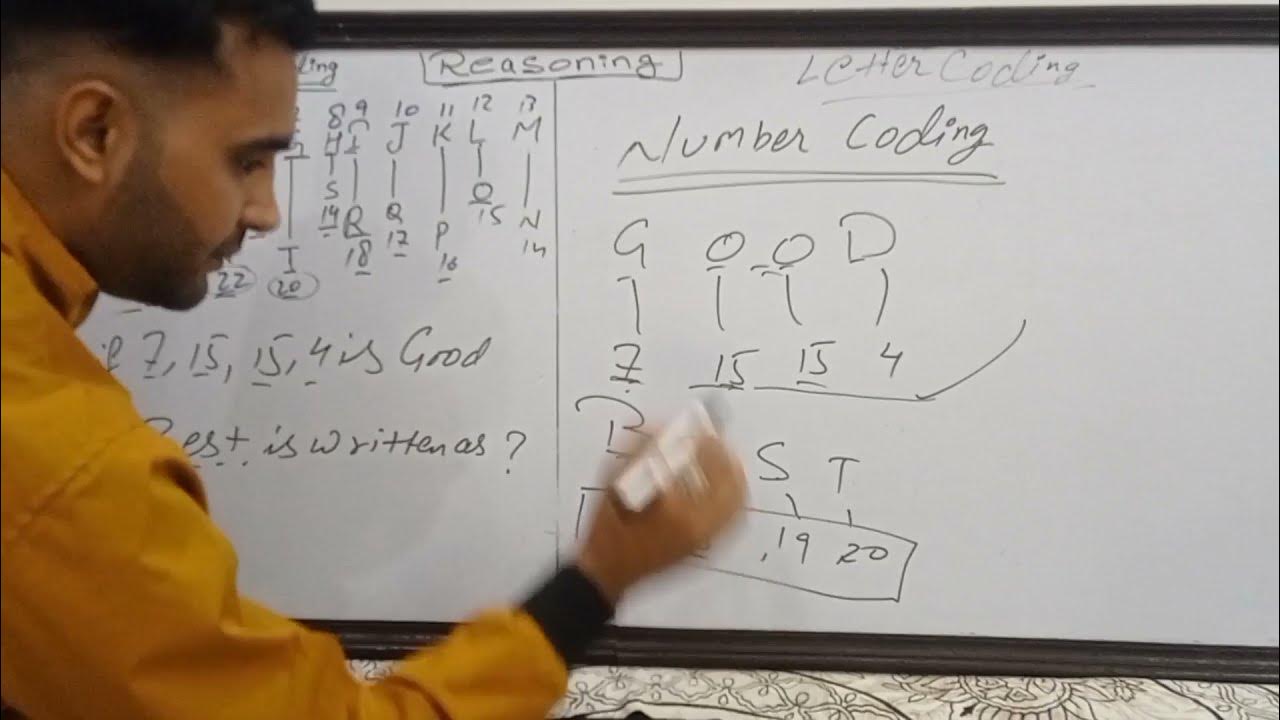 Reasoning
Letter Coding
8 9 10 11 12 13
H I J K L M
S R Q P O N
14 18 17 16 15 14
22 20
Number Coding
G O O D
7 15 15 4
7, 15, 15, 4 is Good
est is written as ?
B S T
19 20